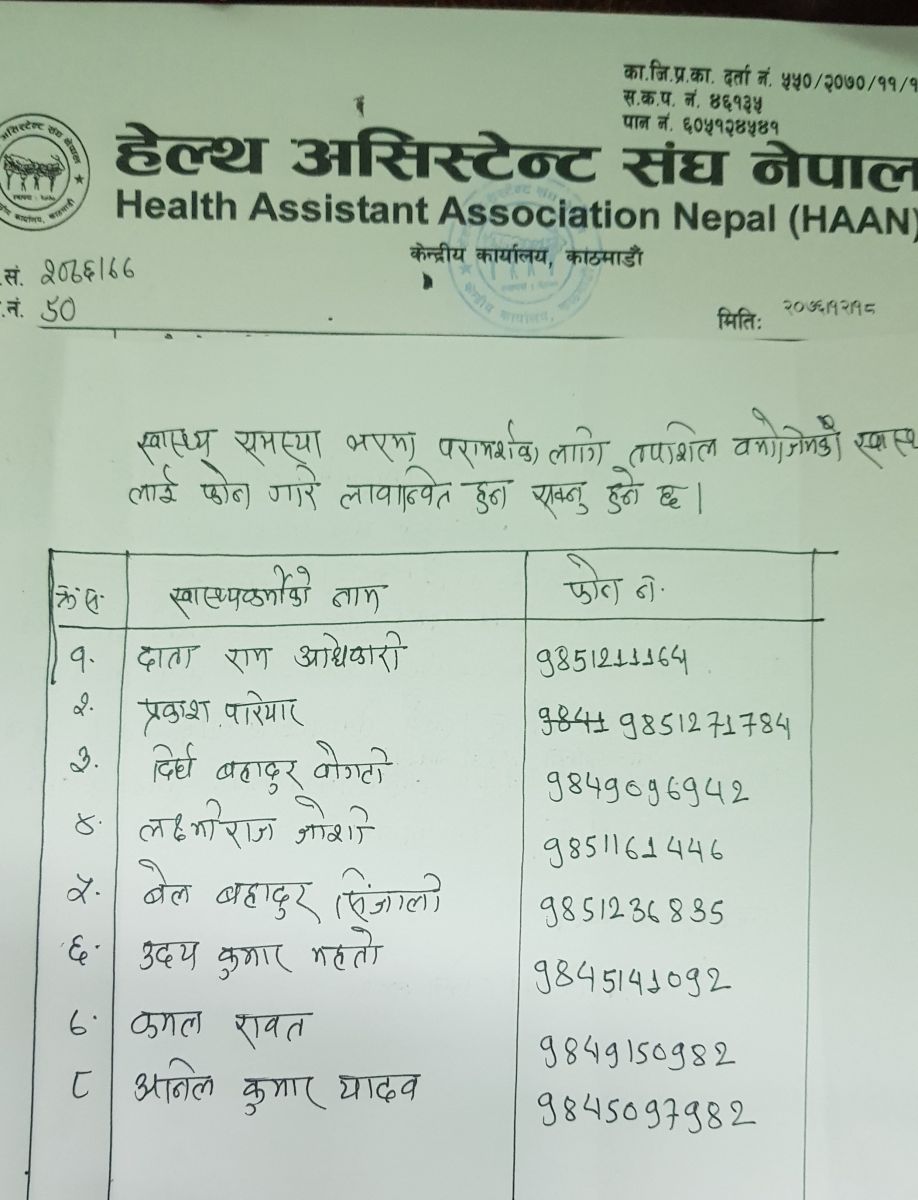 का.जि.प्र.का. दर्ता नं. ५५०/२०७०/११/१
स.क.प. नं. ४६१३५
पान नं. ६०५१२४५४१
हेल्थ असिस्टेन्ट संघ नेपाल
Health Assistant Association Nepal (HAAN)
केन्द्रीय कार्यालय, काठमाडौं
.सं. २०७६/७७
.नं. ५०
मितिः २०७६/१२/१८
स्वास्थ्य समस्या भएमा परामर्शका लागि तपशिल वमोजिमको स्वास्थ
लाई फोन गरि लावान्वित हुन सक्नु हुने छ।
क्र.सं. स्वास्थ्यकर्मीको नाम फोन नं.
१. दाता राम अधिकारी 9851211164
२. प्रकाश परियार 9841 9851271784
३. दिर्घ बहादुर वोगटी 9849096942
४. लक्ष्मीराज जोशी 9851161446
५. बेल बहादुर सिंजाली 9851236835
६. उदय कुमार महतो 9845141092
७. कमल रावत 9849150982
८ अनिल कुमार यादव 9845097982